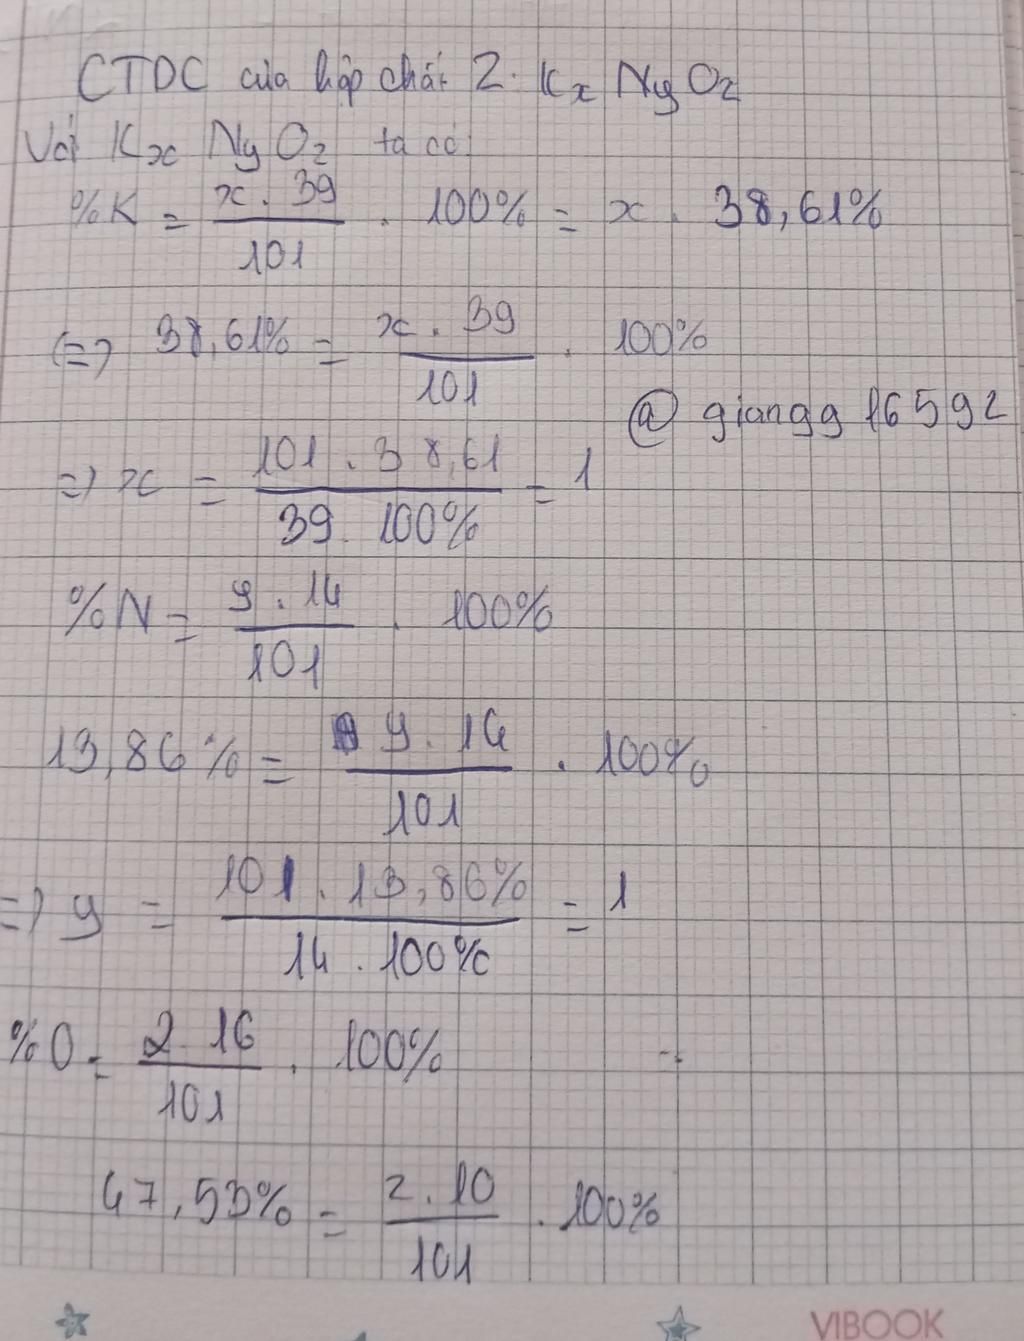 CTDC của hợp chất 2. KxNyOz
Với KxNyOz ta có
%K = x. 39 / 101 . 100% = x . 38,61%
(=) 38,61% = x. 39 / 101 . 100%
@ giangg 16592
=) x = 101 . 38,61 / 39. 100% = 1
%N = y . 14 / 101 . 100%
13,86% = y. 14 / 101 . 100%
=) y = 101 . 13,86% / 14 . 100% = 1
%O = 2. 16 / 101 . 100%
47,53% = z . 10 / 101 . 100%
VIBOOK